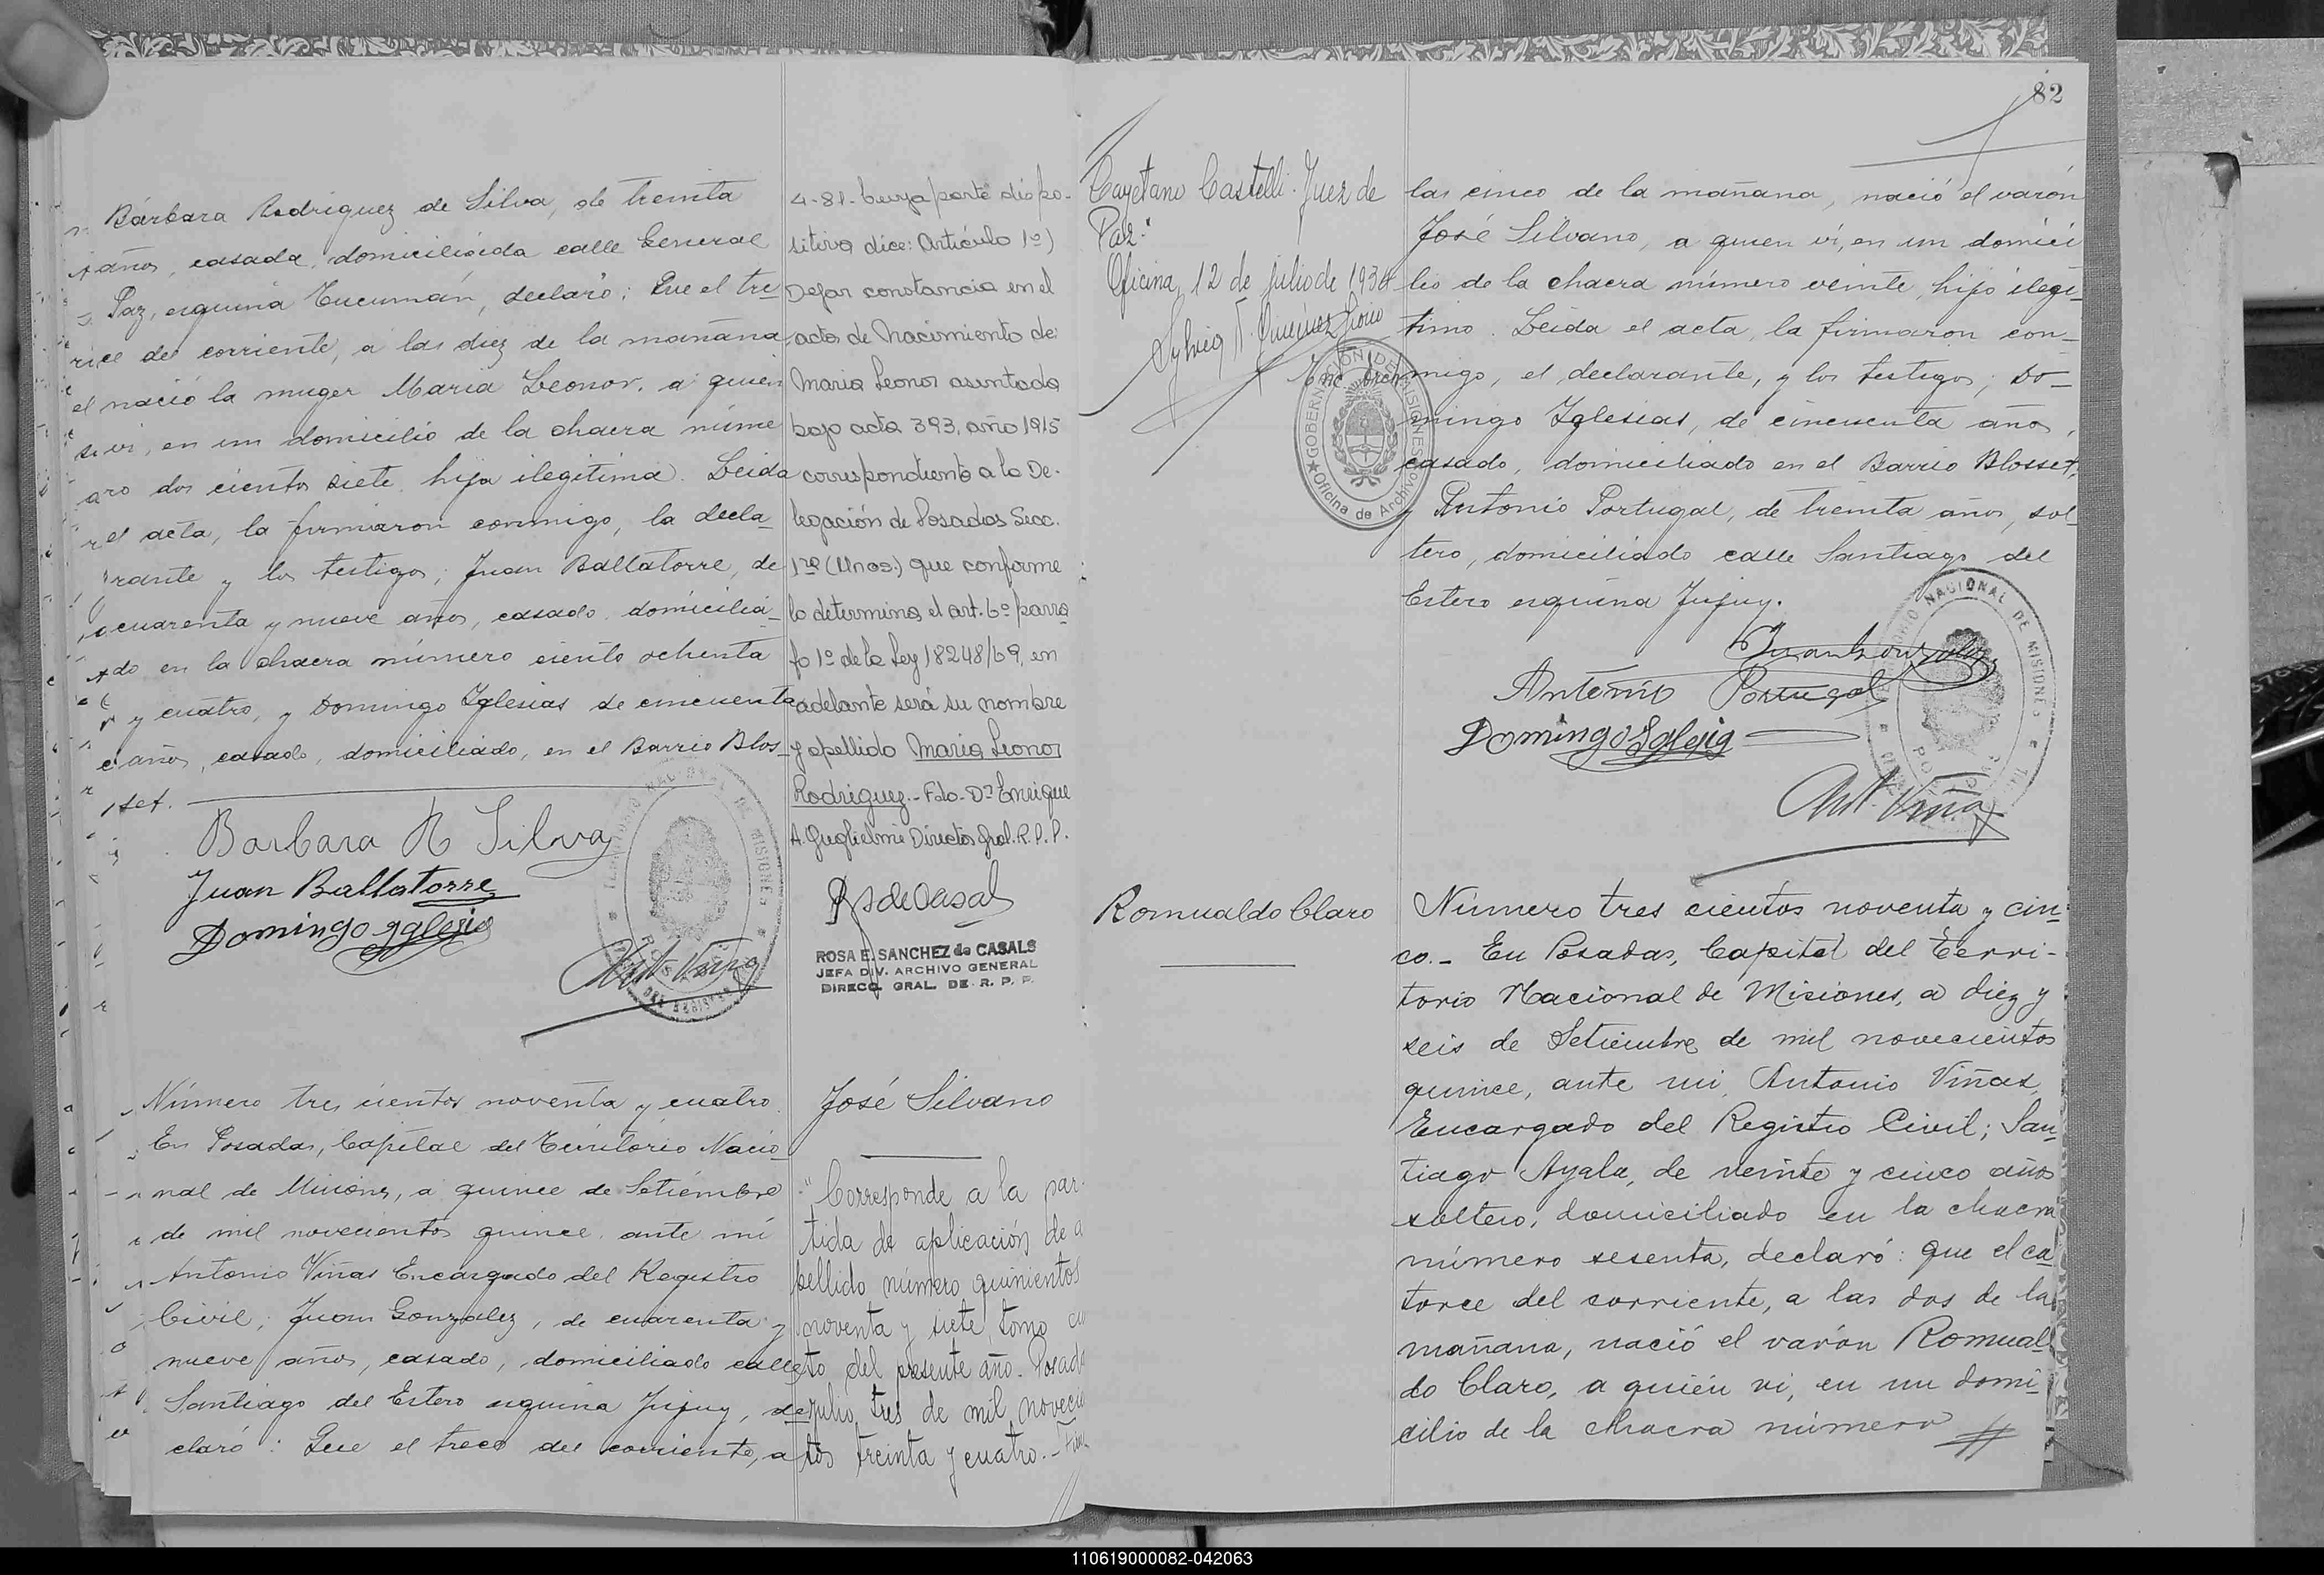 Bárbara Rodriguez de Silva, de treinta
años, casada, domiciliada calle General
Paz, esquina Tucumán, declaró: Que el tre
ce del corriente, a las diez de la mañana
nació la muger María Leonor, a quien
vi, en un domicilio de la chacra núme
ro dos cientos siete, hija ilegitima. Leida
el acta, la firmaron conmigo, la decla_
rante y los testigos; Juan Ballatorre, de
cuarenta y nueve años, casado, domicilia_
do en la chacra número ciento ochenta
y cuatro, y Domingo Iglesias de cincuenta
años, casado, domiciliado, en el Barrio Blos_
set.
Barbara R Silva
Juan Ballatorre
Domingo Iglesia
Ant. Viñas
4-81- Cuya parte dispo-
sitiva dice: Artículo 1º)
Dejar constancia en el
acta de Nacimiento de:
Maria Leonor asentada
bajo acta 393, año 1915
correspondiente a la De-
legación de Posadas Secc.
1ra (Mnes.) que conforme
lo determina el art. 6º parra
fo 1º de la Ley 18248/69, en
adelante será su nombre
y apellido Maria Leonor
Rodriguez.- Fdo- Dn Enrique
A. Guglielmi Director Gral. R.P.P.
ROSA E. SANCHEZ de CASALS
JEFA DIV. ARCHIVO GENERAL
DIRECC. GRAL. DE R. P. P.
Número tres cientos noventa y cuatro
En Posadas, Capital del Territorio Nacio_
nal de Misiones, a quince de Setiembre
de mil novecientos quince, ante mí
Antonio Viñas Encargado del Registro
Civil; Juan Gonzalez, de cuarenta y
nueve años, casado, domiciliado calle
Santiago del Estero esquina Jujuy, de_
claró: Que el trece del corriente, a
José Silvano
"Corresponde a la par-
tida de aplicación de a
pellido número quinientos
noventa y siete, tomo cu
to del presente año. Posad
julio tres de mil novecie
tos treinta y cuatro.- Fir
82
Cayetano Castelli. Juez de
Paz."
Oficina, 12 de julio de 1934
GOBERNACIÓN DE MISIONES
Oficina de Archivo
las cinco de la mañana, nació el varón
José Silvano, a quien vi, en un domici
lio de la chacra número veinte, hijo ilegi_
timo. Leida el acta, la firmaron con_
migo, el declarante, y los testigos; Do_
mingo Iglesias, de cincuenta años,
casado, domiciliado en el Barrio Blosset,
y Antonio Portugal, de treinta años, sol_
tero, domiciliado calle Santiago del
Estero esquina Jujuy.
Juan Gonzalez
Antonio Portugal
Domingo Iglesia
Ant. Viñas
Romualdo Claro
Número tres cientos noventa y cin_
co.- En Posadas, Capital del Terri-
torio Nacional de Misiones, a diez y
seis de Setiembre de mil novecientos
quince, ante mi, Antonio Viñas,
Encargado del Registro Civil; San_
tiago Ayala, de veinte y cinco años
soltero, domiciliado en la chacra
número sesenta, declaró: que el ca_
torce del corriente, a las dos de la
mañana, nació el varón Romual_
do Claro, a quién vi, en un domi_
cilio de la chacra número
110619000082-042063